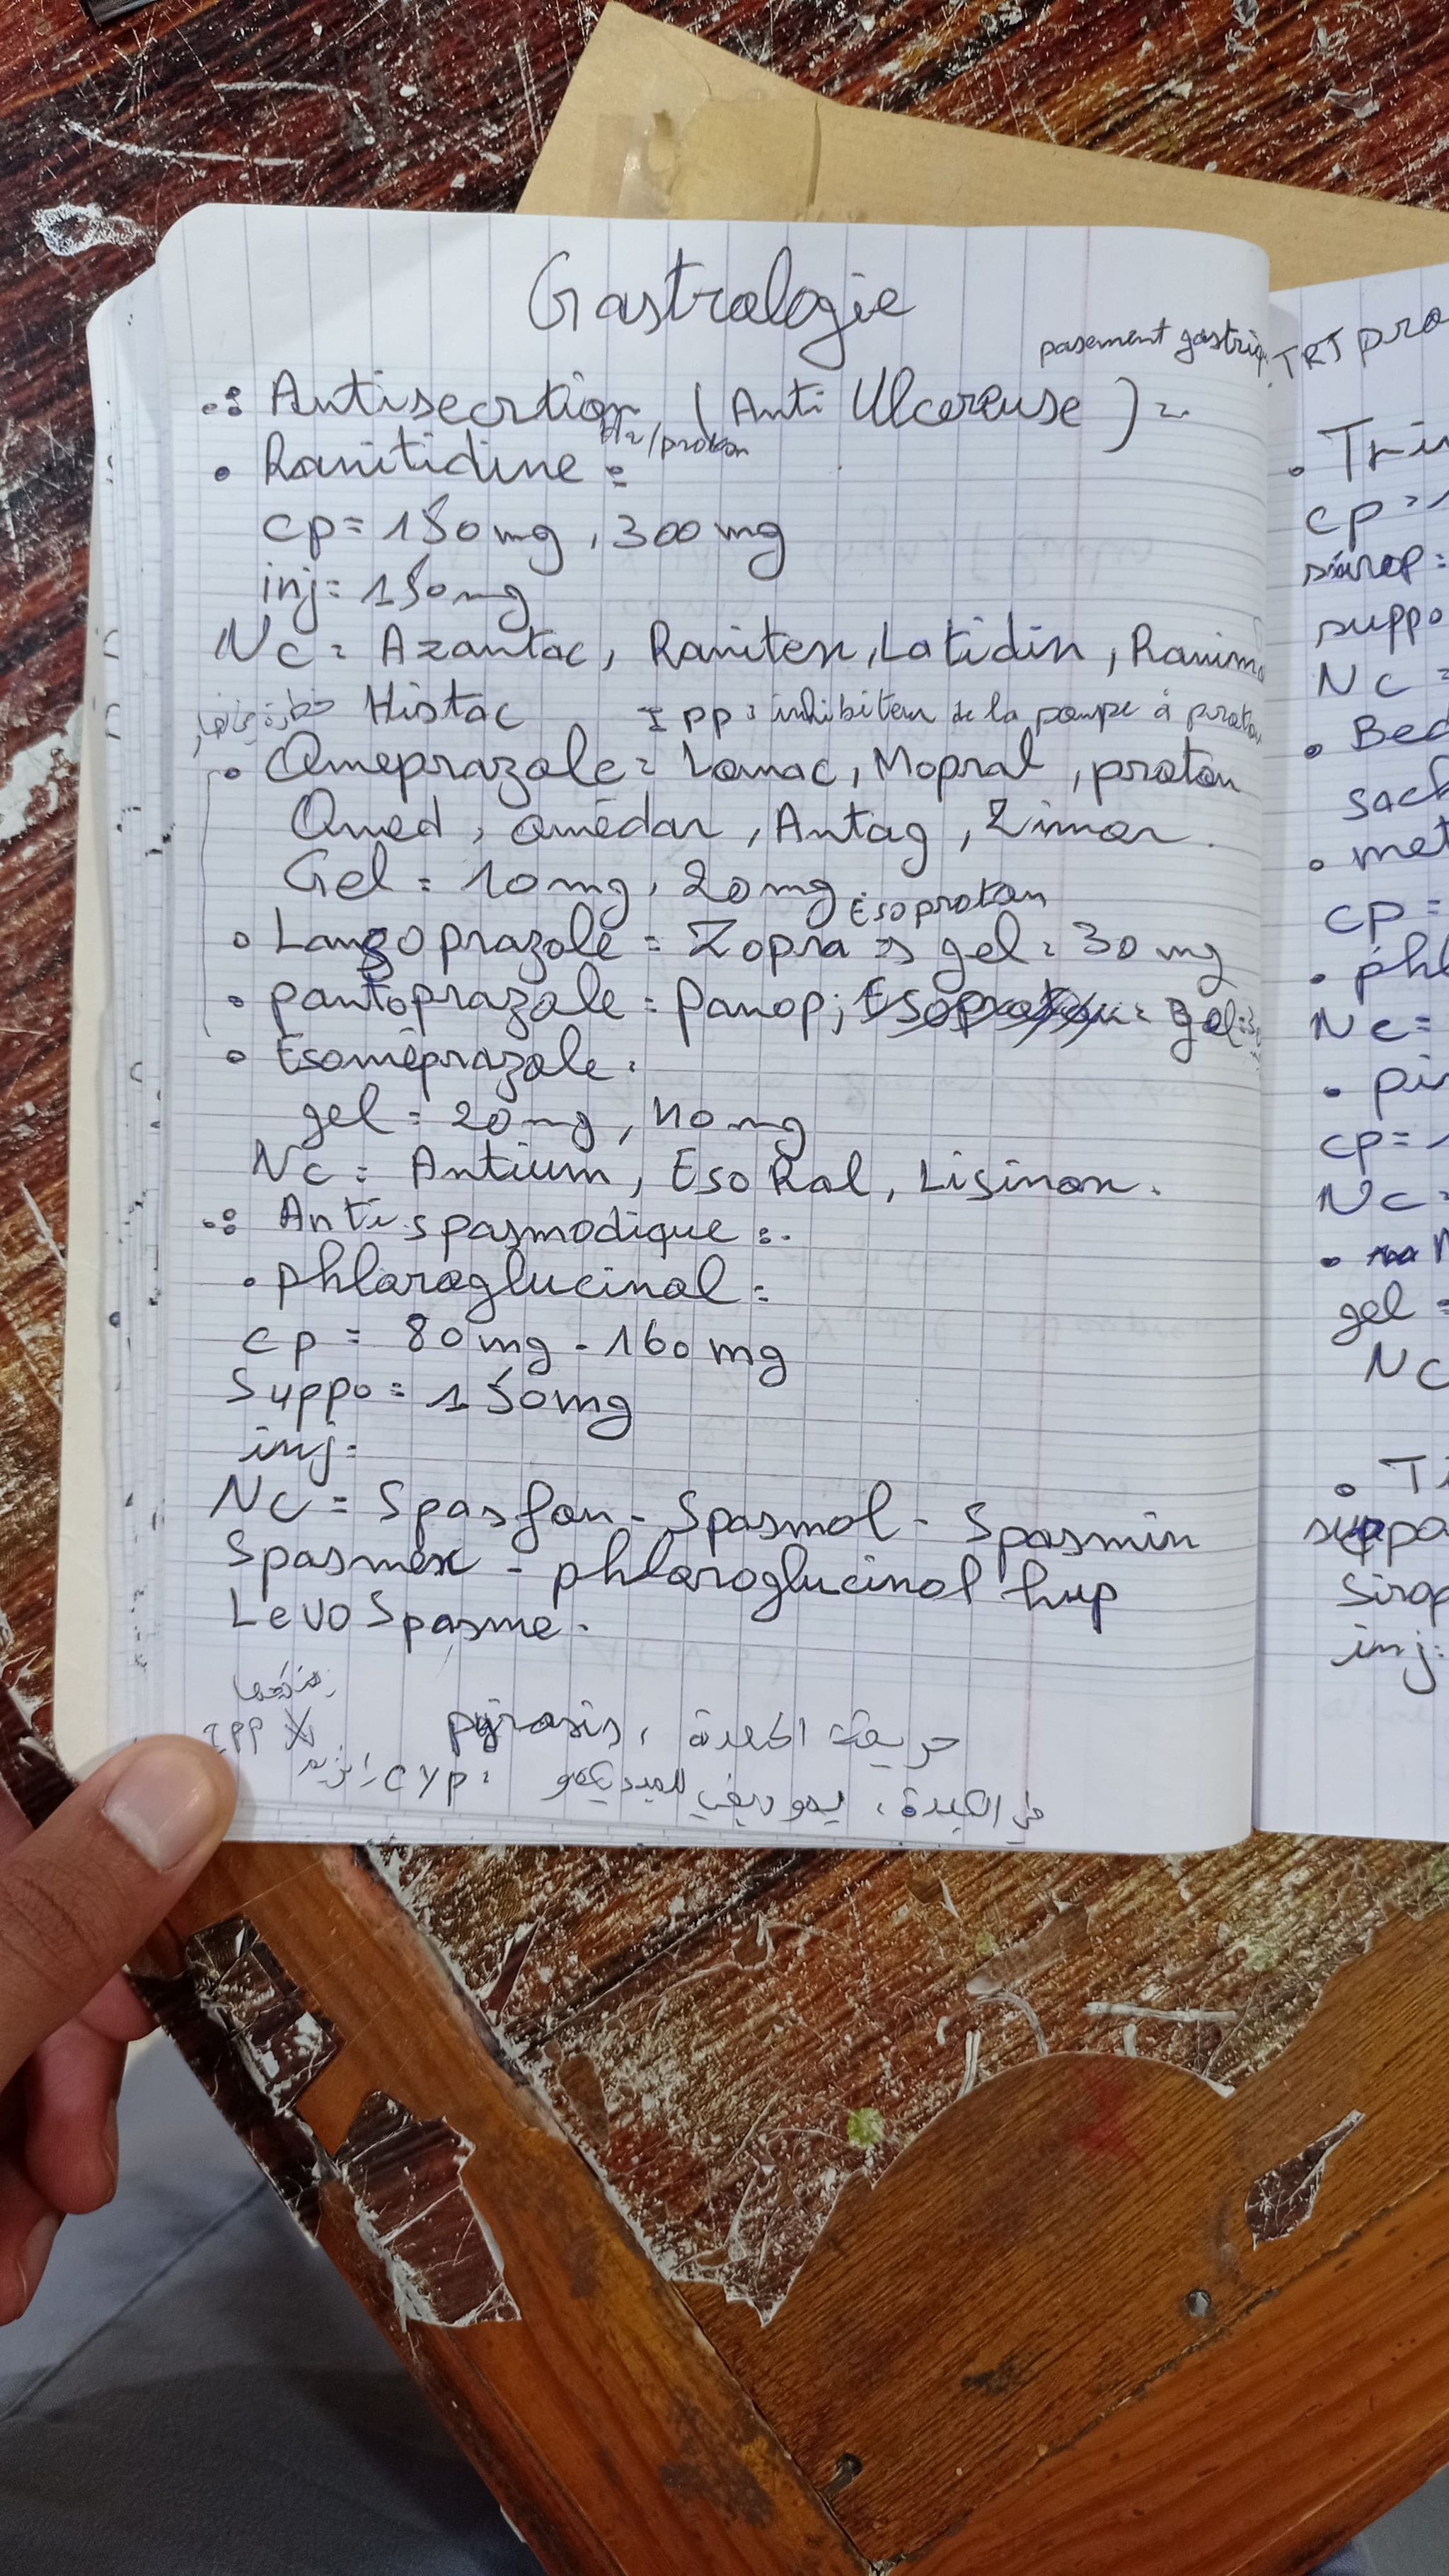 Gastrologie
pasement gastriq
∴ Antisecrtion (Anti Ulcereuse) =
H2/proton
• Ranitidine =
cp = 150 mg, 300 mg
inj = 150 mg
Nc = Azantac, Ranitex, Latidin, Ranim
Histac
IPP = inhibiteur de la pompe à proton
• Omeprazole = Lomac, Mopral, proton
Omed, omédar, Antag, Zimor.
Gel = 10 mg, 20 mg
Esoproton
• Lansoprazole = Zopra => gel = 30 mg
• pantoprazole = panop; gel =
• Esoméprazole =
gel = 20 mg, 40 mg
Nc = Antium, Eso Ral, Lisinox.
∴ Anti spasmodique :.
• phloroglucinol =
cp = 80 mg - 160 mg
Suppo = 150 mg
inj =
NC = Spasfon - Spasmol - Spasmin
Spasmex - phloroglucinol hup
Levo Spasme.
IPP
pyrosis, حريقة المعدة
CYP:
في الكبدة،
TRT pro
• Tri
cp =
sirop =
suppo
NC =
• Bed
sach
• met
cp =
• phl
Nc =
• pi
cp =
NC =
gel =
NC
• Ti
suppo
Sirop
inj: